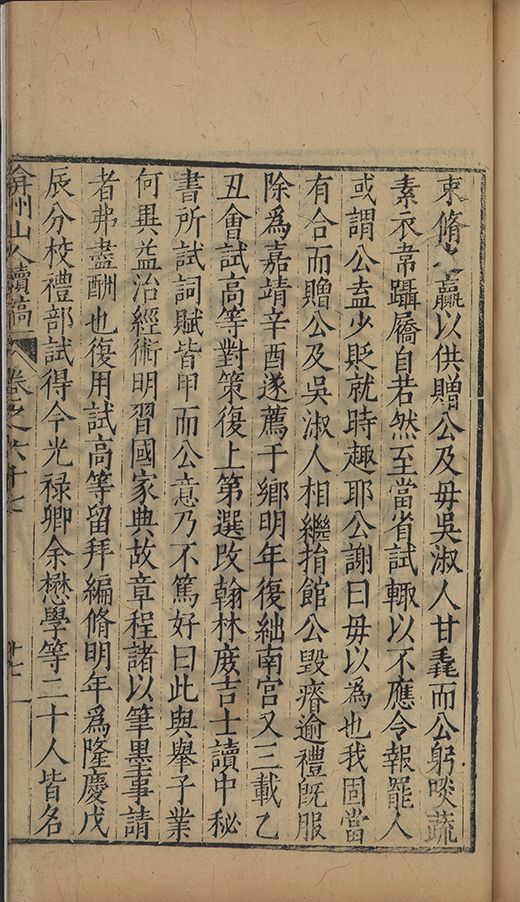 束脩之羸以供贈公及毋吳淑人甘毳而公躬啖蔬
素衣韋躡屩自若然至當省試輙以不應令報罷人
或謂公盍少貶就時趣耶公謝曰毋以為也我固當
有合而贈公及吳淑人相繼捐館公毀瘠逾禮既服
除為嘉靖辛酉遂薦于鄉明年復絀南宮又三載乙
丑會試高等對策復上第選改翰林庻吉士讀中秘
書所試詞賦皆甲而公意乃不篤好曰此與舉子業
何異益治經術明習國家典故章程諸以筆墨事請
者弗盡酬也復用試高等留拜編脩明年為隆慶戊
辰分校禮部試得今光祿卿余懋學等二十人皆名
弇州山人續稿 卷之六十七 十七